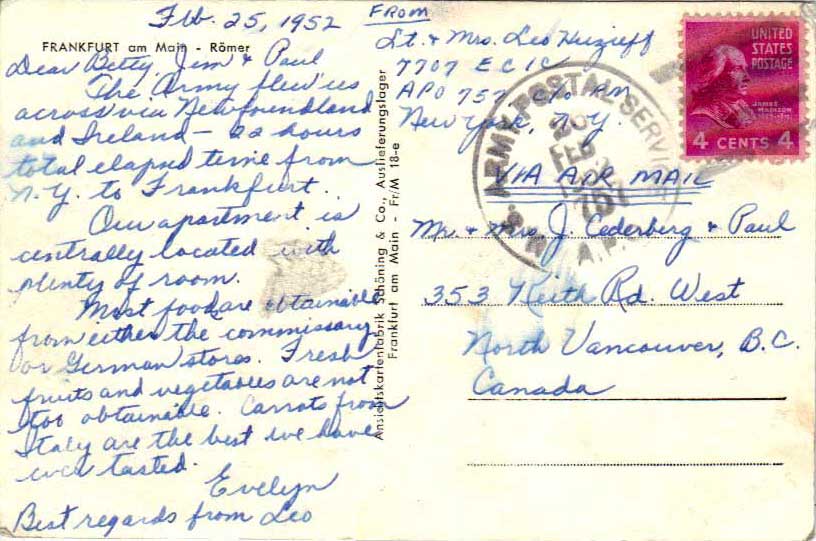 Feb. 25, 1952
FRANKFURT am Main - Römer
Dear Betty Jim & Paul
The Army flew us
across via Newfoundland
and Ireland - 22 hours
total elapsed time from
N.Y. to Frankfurt.
Our apartment is
centrally located with
plenty of room.
Most food are obtainable
from either the commissary
or German stores. Fresh
fruits and vegetables are not
too obtainable. Carrots from
Italy are the best we have
ever tasted.
Evelyn
Best regards from Leo
Ansichtskartenfabrik Schöning & Co., Auslieferungslager
Frankfurt am Main - Fr/M 18-e
FROM
Lt. & Mrs. Leo
7707 E C I C
APO 757 c/o PM
New York, N.Y.
UNITED
STATES
POSTAGE
JAMES
MADISON
4 CENTS 4
ARMY POSTAL SERVICE
FEB
757
A.P.
VIA AIR MAIL
Mr. & Mrs. J. Cederberg & Paul
353 Keith Rd. West
North Vancouver, B.C.
Canada